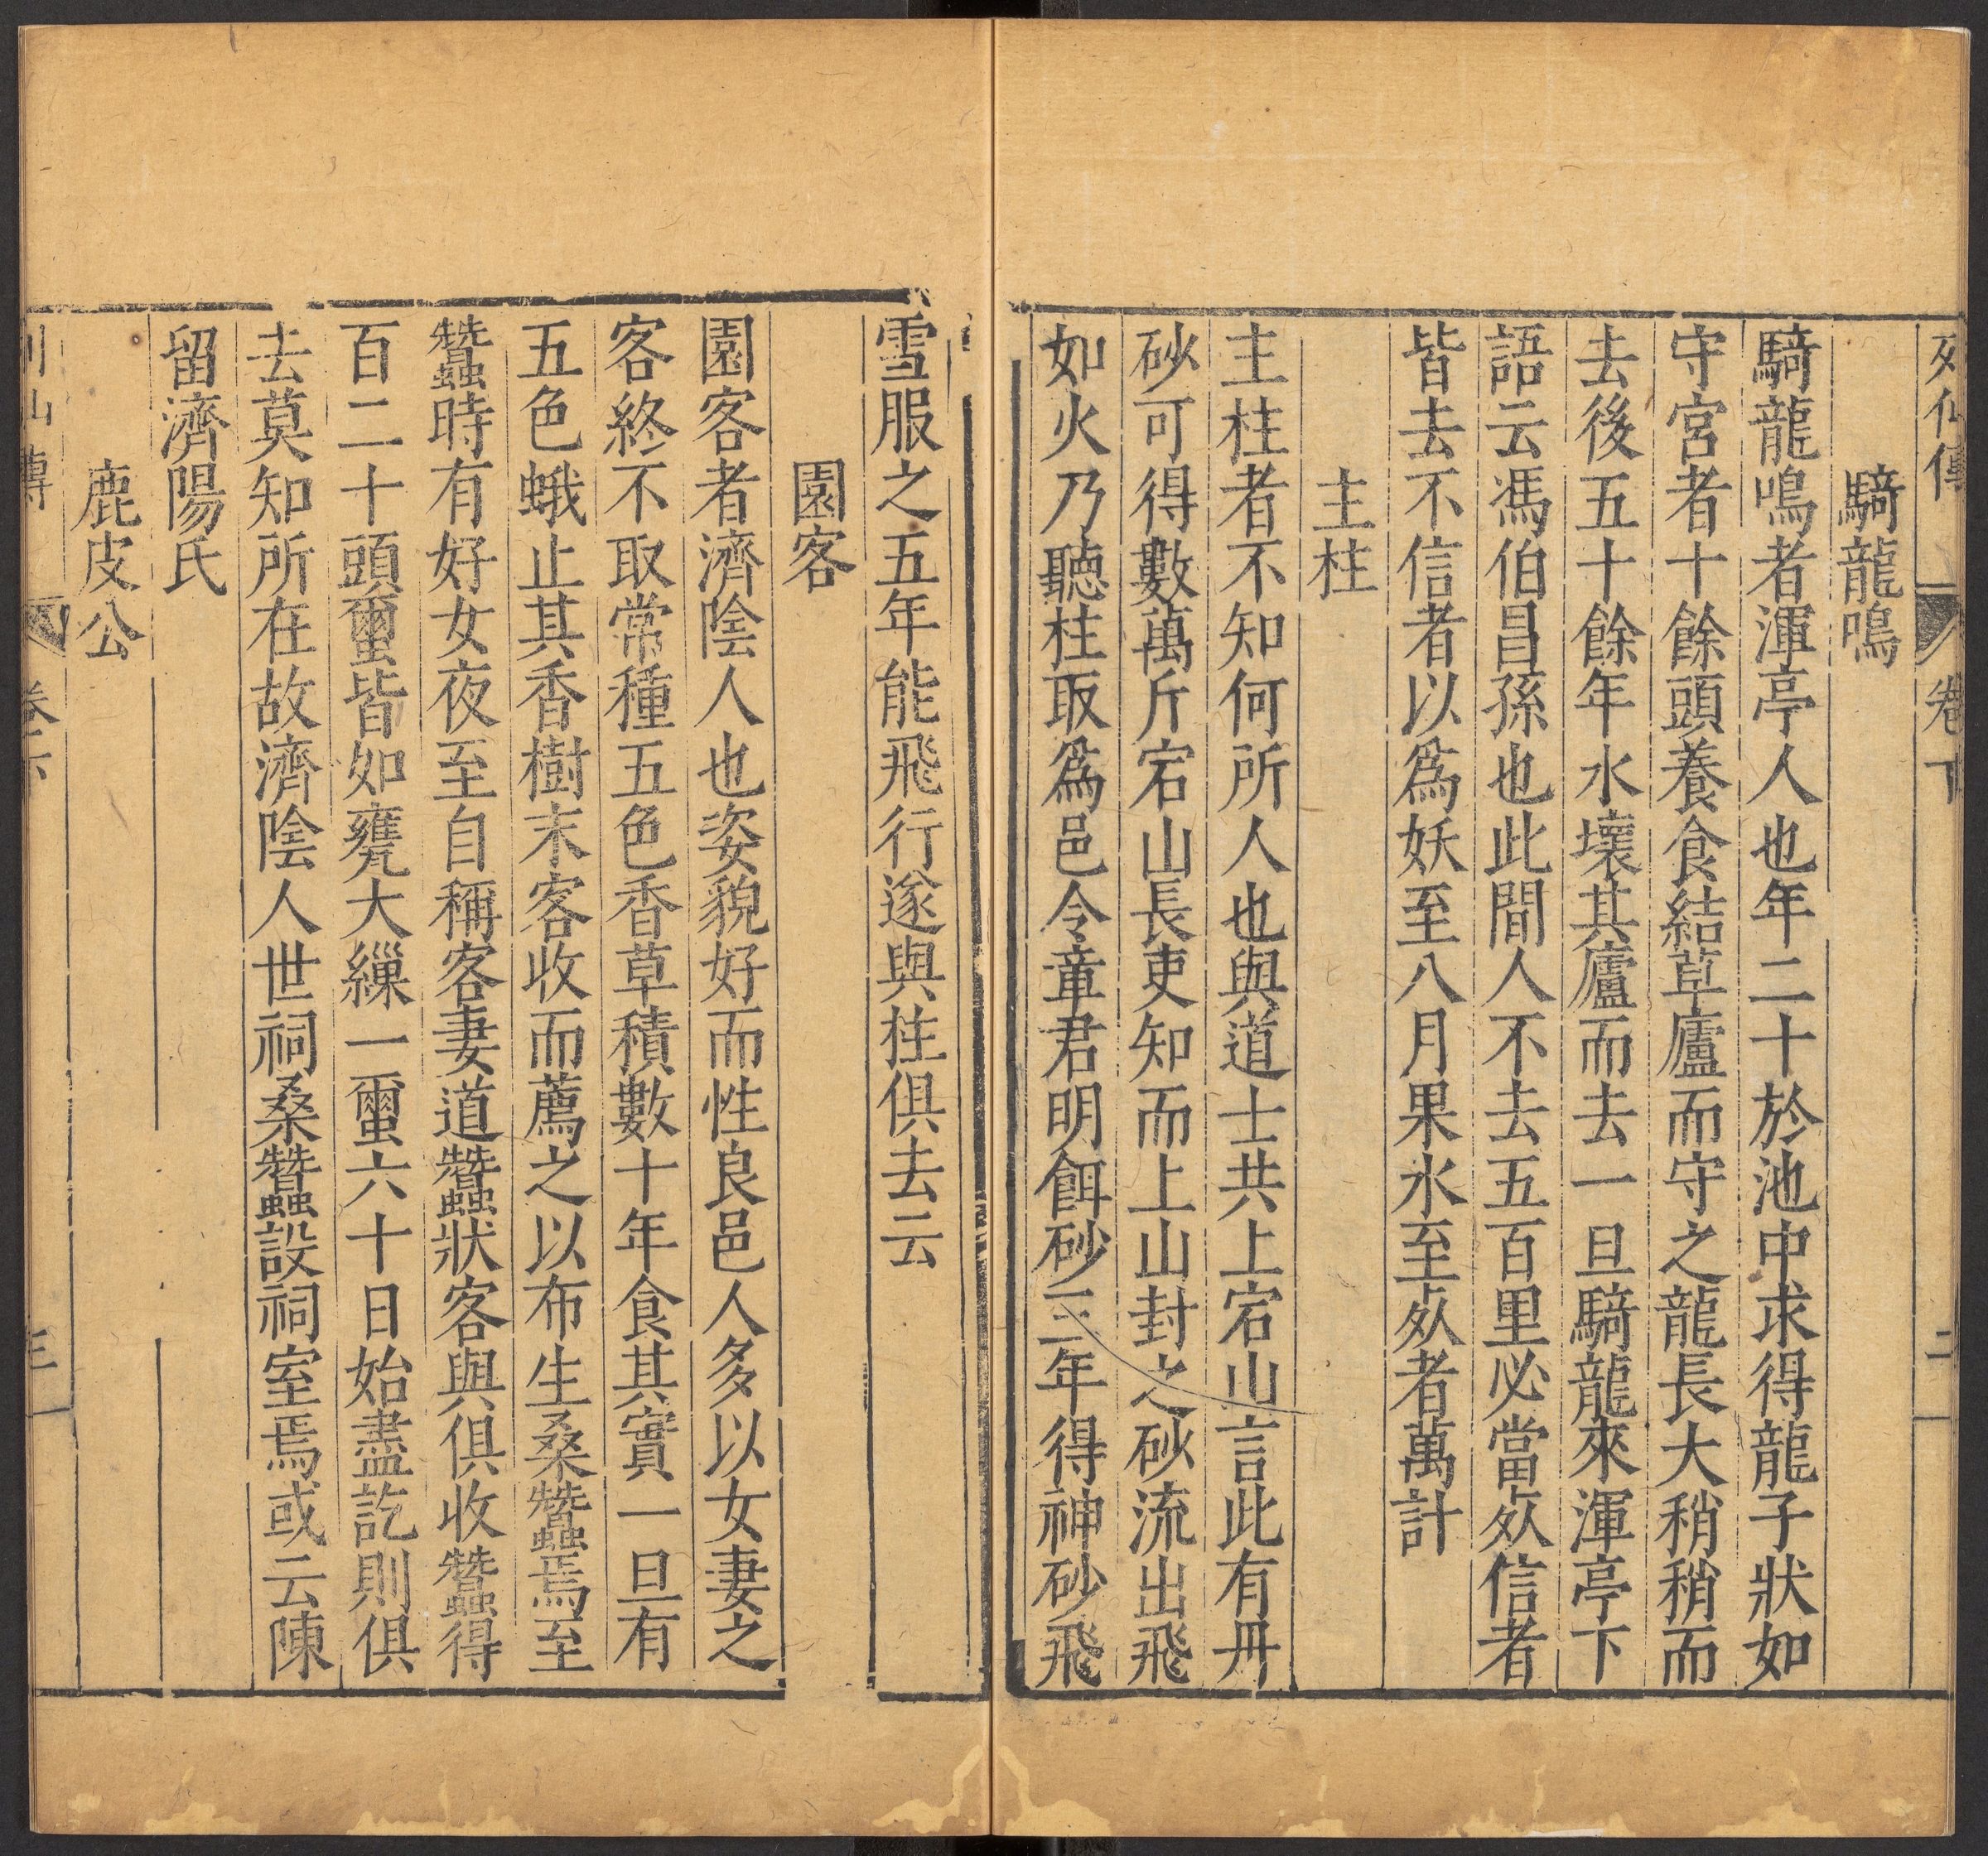 列仙傳 卷下 二
騎龍鳴
騎龍鳴者渾亭人也年二十於池中求得龍子狀如
守宮者十餘頭養食結草廬而守之龍長大稍稍而
去後五十餘年水壞其廬而去一旦騎龍來渾亭下
語云馮伯昌孫也此間人不去五百里必當死信者
皆去不信者以爲妖至八月果水至死者萬計
主柱
主柱者不知何所人也與道士共上宕山言此有丹
砂可得數萬斤宕山長吏知而上山封之砂流出飛
如火乃聽柱取爲邑令章君明餌砂三年得神砂飛
雪服之五年能飛行遂與柱俱去云
園客
園客者濟陰人也姿貌好而性良邑人多以女妻之
客終不取常種五色香草積數十年食其實一旦有
五色蛾止其香樹末客收而薦之以布生桑蠶焉至
蠶時有好女夜至自稱客妻道蠶狀客與俱收蠶得
百二十頭繭皆如甕大繅一繭六十日始盡訖則俱
去莫知所在故濟陰人世祠桑蠶設祠室焉或云陳
留濟陽氏
鹿皮公
列仙傳 卷下 三